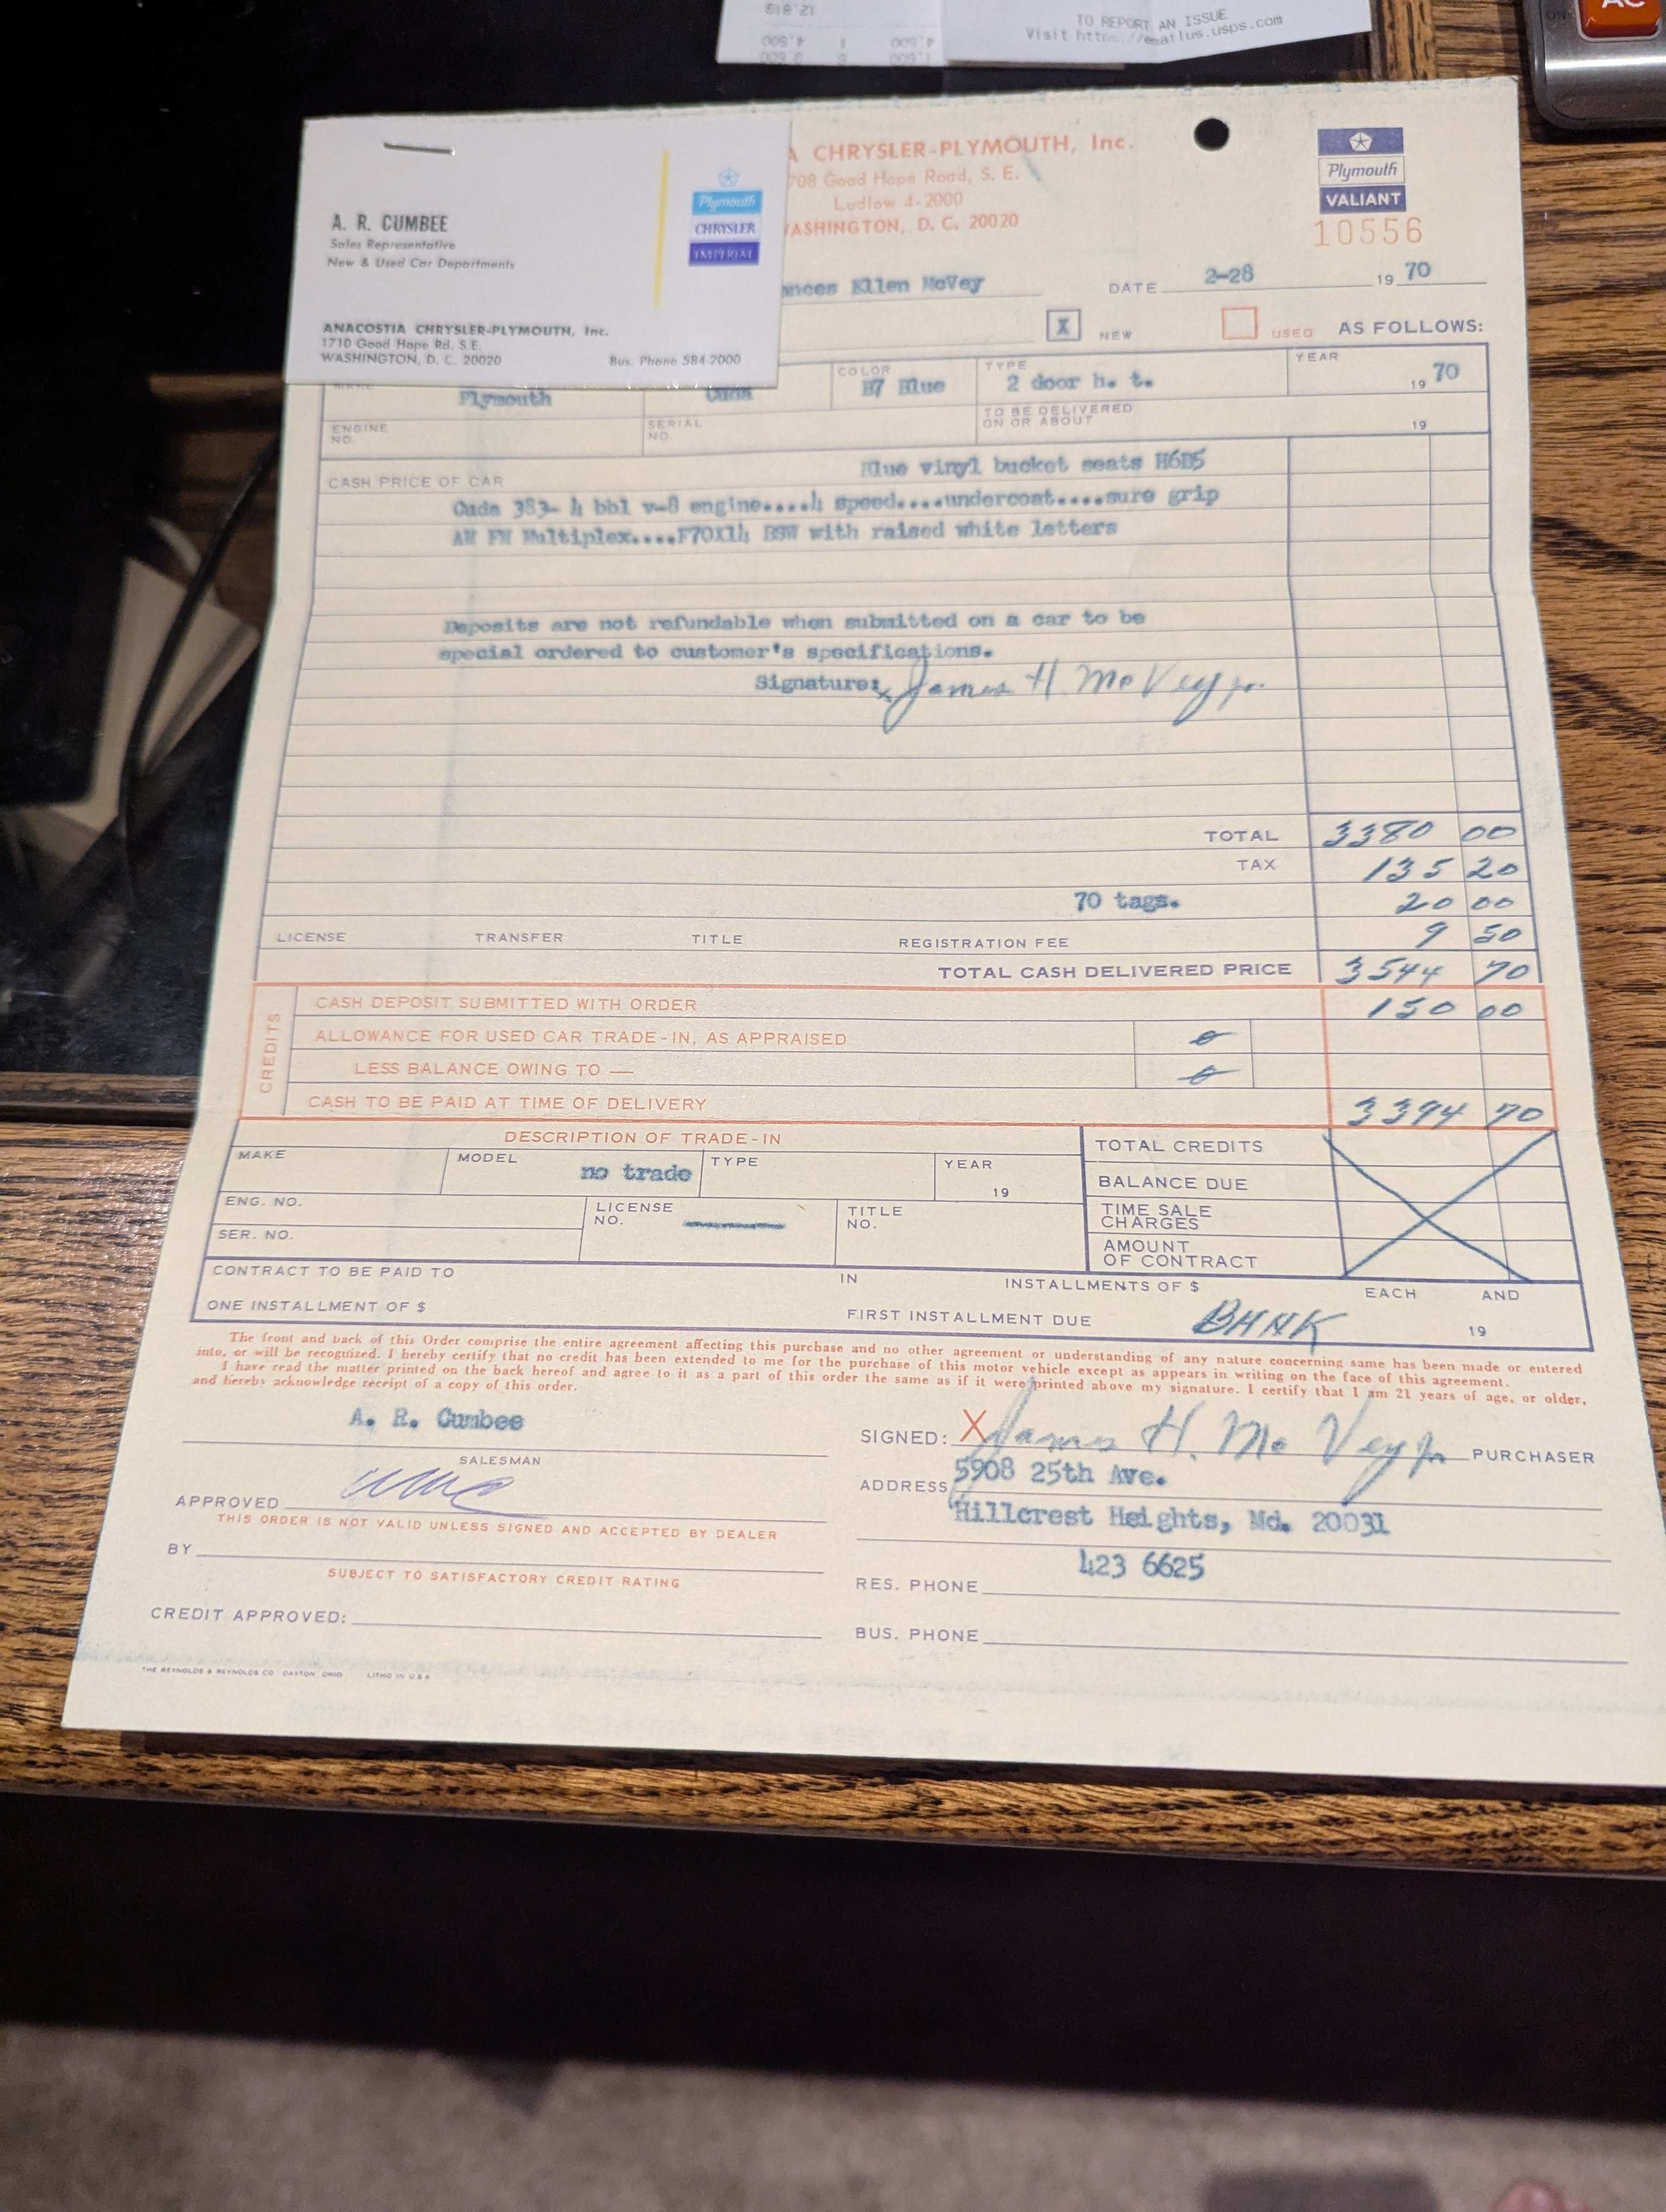 TO REPORT AN ISSUE
Visit https://emailus.usps.com
AC
A. R. CUMBEE
Sales Representative
New & Used Car Departments
Plymouth
CHRYSLER
IMPERIAL
ANACOSTIA CHRYSLER-PLYMOUTH, Inc.
1710 Good Hope Rd. S.E.
WASHINGTON, D. C. 20020 Bus. Phone 584-2000
A CHRYSLER-PLYMOUTH, Inc.
708 Good Hope Road, S. E.
Ludlow 4-2000
WASHINGTON, D. C. 20020
Plymouth
VALIANT
10556
ances Ellen McVey DATE 2-28 19 70
X NEW USED AS FOLLOWS:
MAKE Plymouth COLOR B7 Blue TYPE 2 door h. t. YEAR 19 70
ENGINE NO. SERIAL NO. TO BE DELIVERED ON OR ABOUT 19
CASH PRICE OF CAR Blue vinyl bucket seats H6B5
Cuda 383- 4 bbl v-8 engine....4 speed....undercoat....sure grip
AM FM Multiplex....F70X14 BSW with raised white letters
Deposits are not refundable when submitted on a car to be
special ordered to customer's specifications.
Signature: x James H. McVey jr.
TOTAL 3380 00
TAX 135 20
70 tags. 20 00
LICENSE TRANSFER TITLE REGISTRATION FEE 9 50
TOTAL CASH DELIVERED PRICE 3544 70
CREDITS
CASH DEPOSIT SUBMITTED WITH ORDER 150 00
ALLOWANCE FOR USED CAR TRADE-IN, AS APPRAISED 0
LESS BALANCE OWING TO — 0
CASH TO BE PAID AT TIME OF DELIVERY 3394 70
DESCRIPTION OF TRADE-IN
MAKE MODEL no trade TYPE YEAR 19
ENG. NO. LICENSE NO. TITLE NO.
SER. NO.
TOTAL CREDITS
BALANCE DUE
TIME SALE CHARGES
AMOUNT OF CONTRACT
CONTRACT TO BE PAID TO IN INSTALLMENTS OF $ EACH AND
ONE INSTALLMENT OF $ FIRST INSTALLMENT DUE BANK 19
The front and back of this Order comprise the entire agreement affecting this purchase and no other agreement or understanding of any nature concerning same has been made or entered
into, or will be recognized. I hereby certify that no credit has been extended to me for the purchase of this motor vehicle except as appears in writing on the face of this agreement.
I have read the matter printed on the back hereof and agree to it as a part of this order the same as if it were printed above my signature. I certify that I am 21 years of age, or older,
and hereby acknowledge receipt of a copy of this order.
A. R. Cumbee
SALESMAN
APPROVED
THIS ORDER IS NOT VALID UNLESS SIGNED AND ACCEPTED BY DEALER
BY
SUBJECT TO SATISFACTORY CREDIT RATING
CREDIT APPROVED:
SIGNED: X James H. McVey jr PURCHASER
ADDRESS 5908 25th Ave.
Hillcrest Heights, Md. 20031
RES. PHONE 423 6625
BUS. PHONE
THE REYNOLDS & REYNOLDS CO DAYTON OHIO LITHO IN U S A